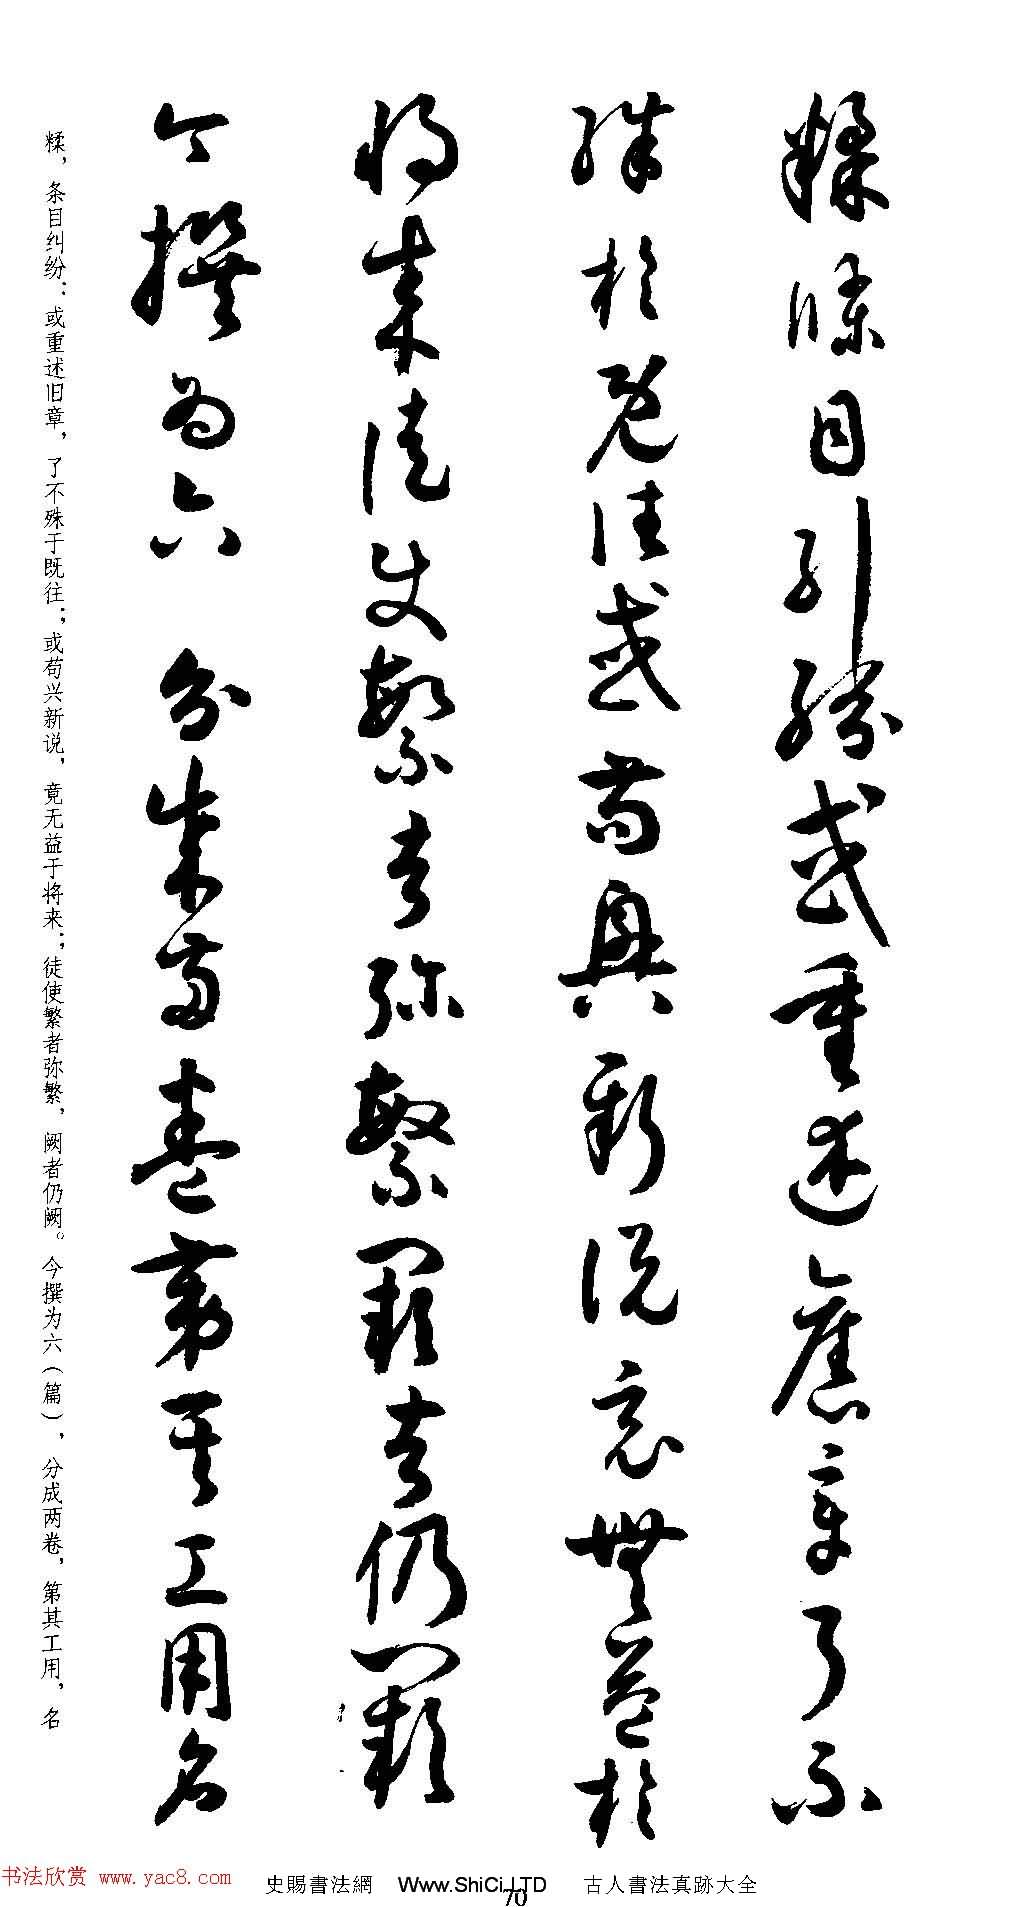 糅條目糾紛或重述舊章了不
殊於既往或苟興新說竟無益於
將來徒使繁者彌繁闕者仍闕
今撰為六 分成兩卷第其工用名
糅，条目纠纷：或重述旧章，了不殊于既往；或苟兴新说，竟无益于将来；徒使繁者弥繁，阙者仍阙。今撰为六（篇），分成两卷，第其工用，名
书法欣赏 www.yac8.com
史賜書法網 Www.ShiCi.LTD 古人書法真跡大全
70